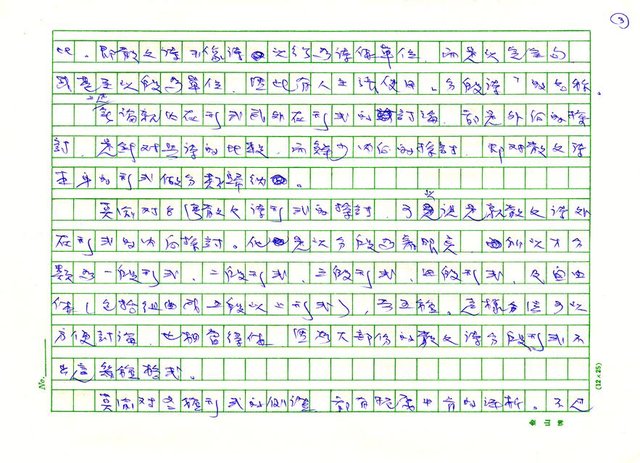 3
此。即散文詩不像詩以行為詩作單位,而是以完全句
或甚至以段為單位,因此有人主張使用「分段詩」的名稱。
討論散文內在形式或外在形式的討論,前是外向的探
討,是針對與詩的比較,而缺少內向的探討,即對散文詩
本身的形式做分類歸納。
莫渝對台灣散文詩形式的探討,可說是就散文詩外
在形式的內向探討。他是以分段為著眼點,所以才分
類為一段形式,二段形式,三段形式,四段形式,及自由
体(包括組曲或五段以上形式),等五種。這樣分法可以
方便討論,也相當得体,因為大部份的散文詩分段形式不
出這幾種格式。
莫渝對各種形式的例證,都有相當中肯的評析。不過
No.
(12×25)